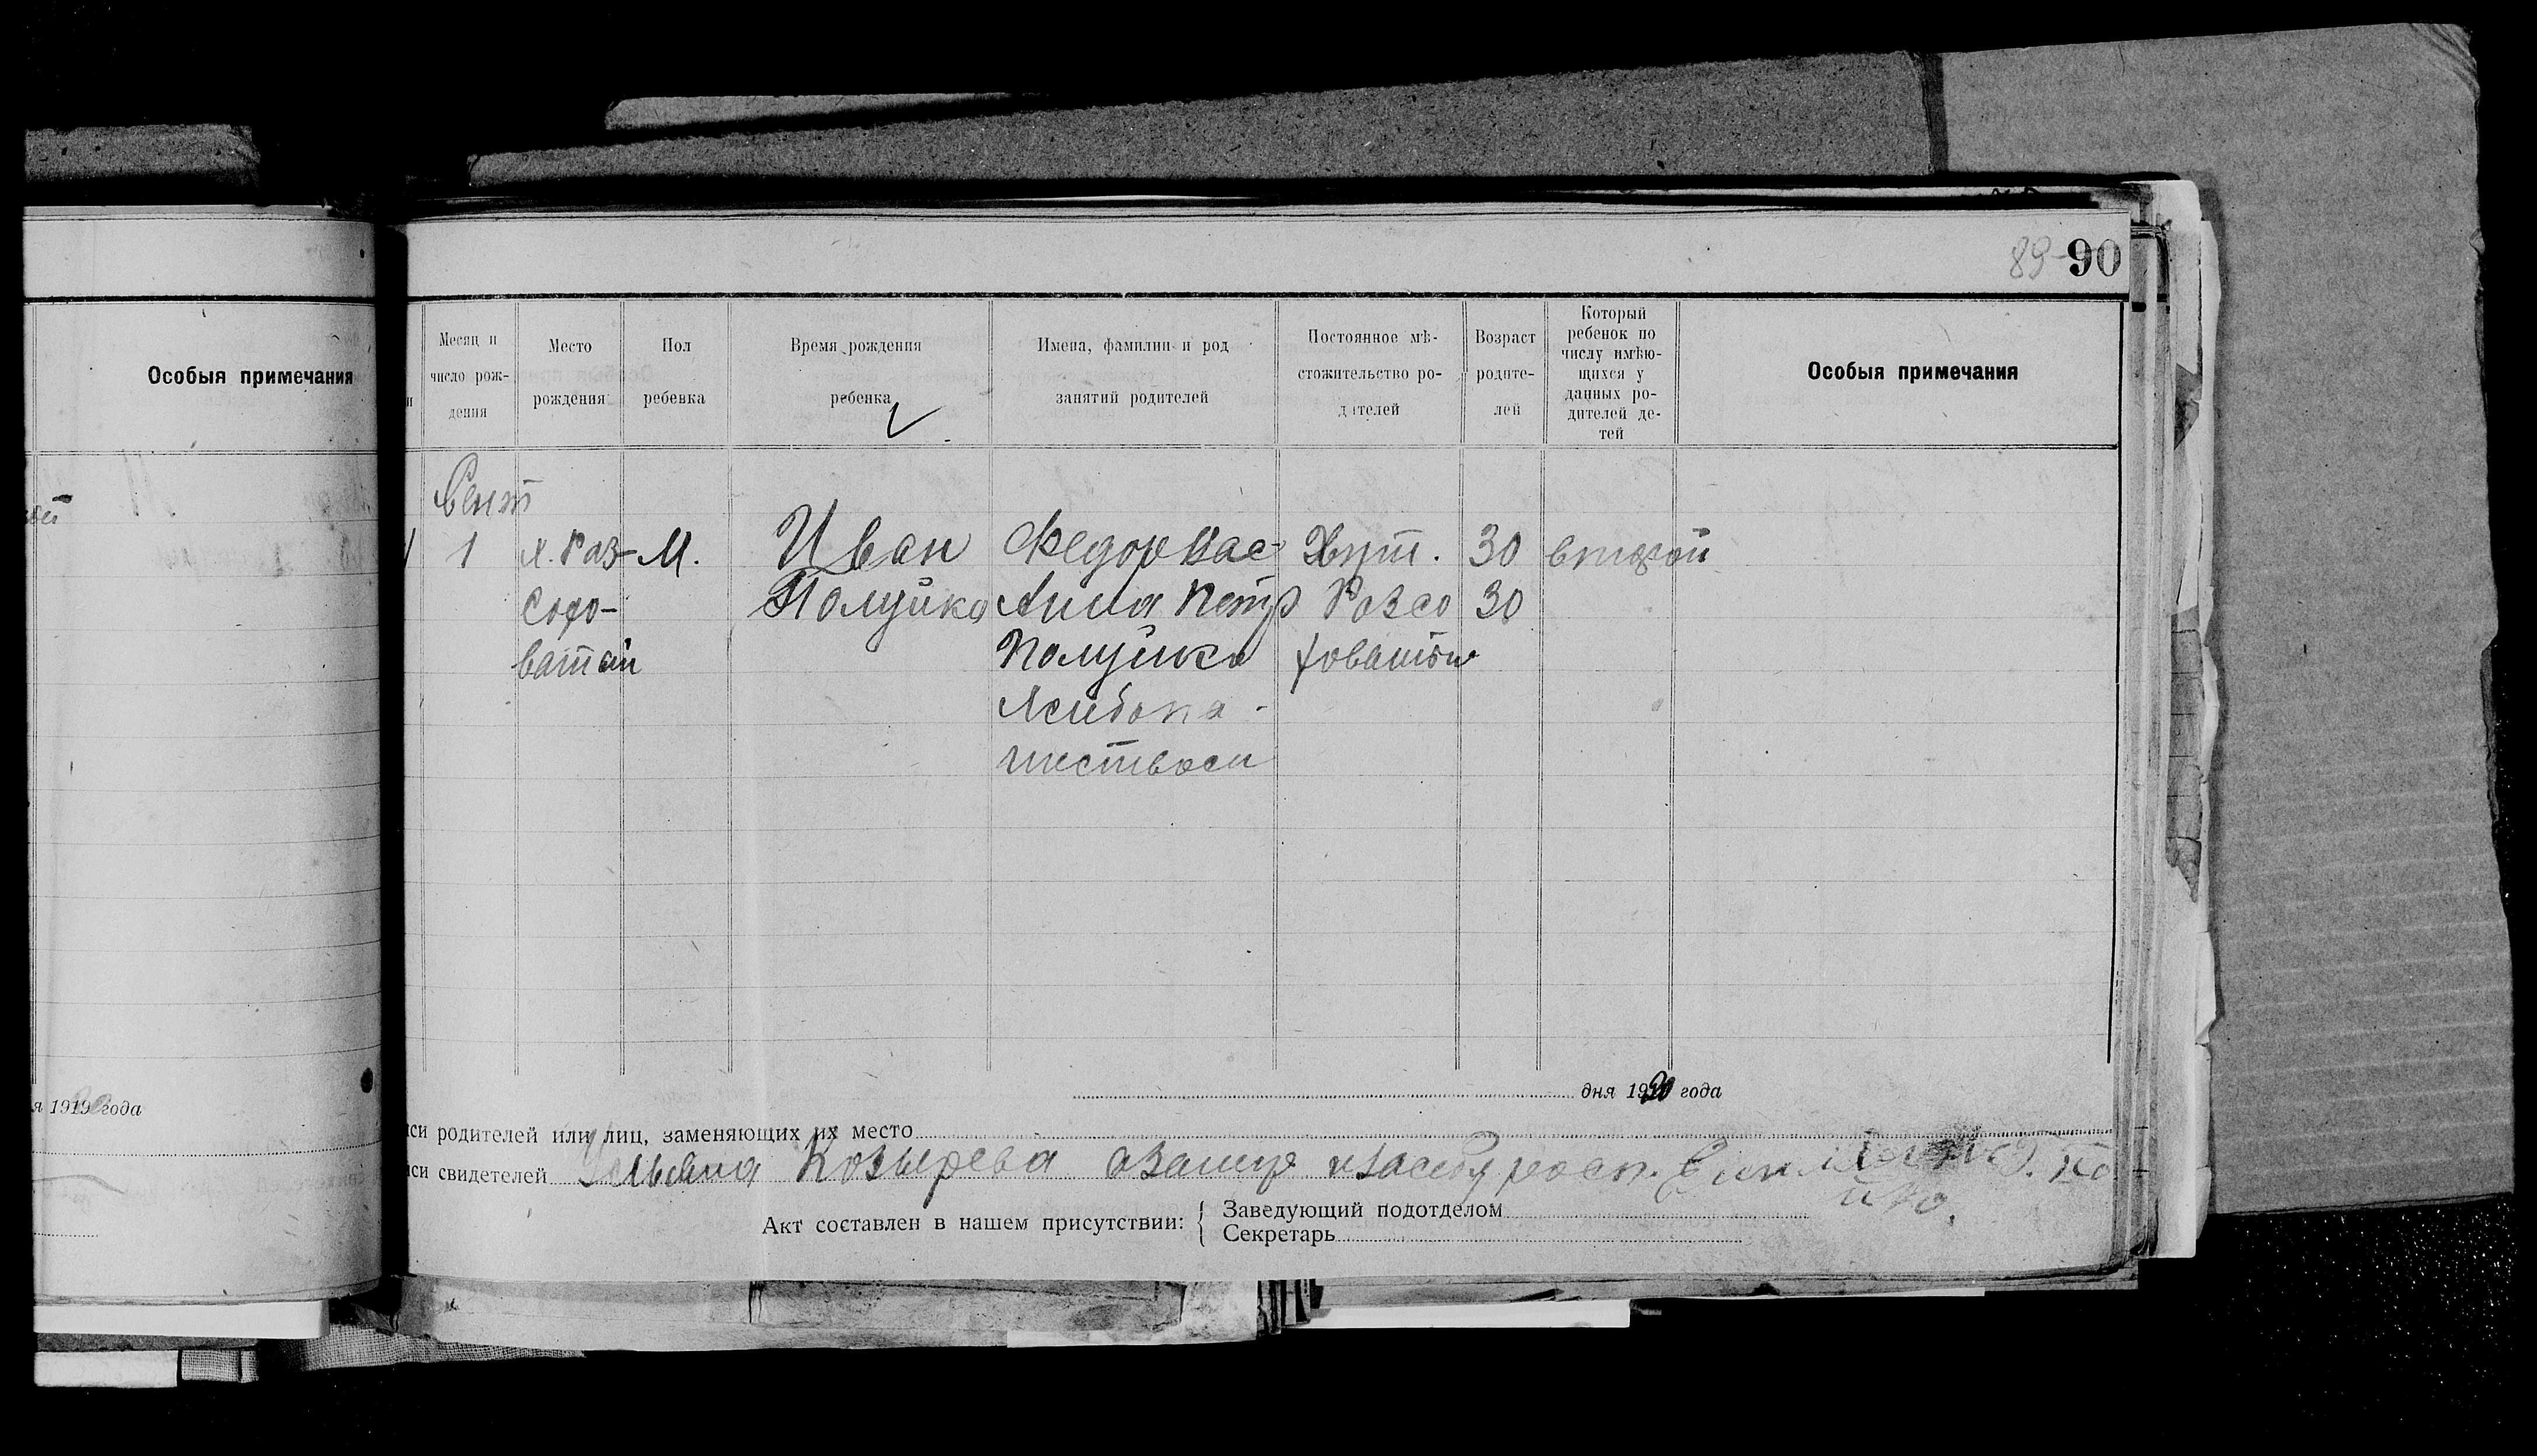 89 90
Особыя примечания
я 1919 года
и
Месяц и
число рож-
дения
Место
рождения
Пол
ребенка
Время рождения
ребенка
Имена, фамилии и род
занятий родителей
Постоянное мѣ-
стожительство ро-
дителей
Возраст
родите-
лей
Который
ребенок по
числу имѣю-
щихся у
данных ро-
дителей де-
тей
Особыя примечания
Сент
1
х. Раз-
сохо-
ватой
М.
Иван
Полуйко
Федор Вас
Анна Петр
Полуйко
Хлебопа-
шеством
Хут.
Разсо
ховатом
30
30
второй
дня 1920 года
си родителей или лиц, заменяющих их место
си свидетелей Ульяна Козырева
Акт составлен в нашем присутствии:
Заведующий подотделом
Секретарь